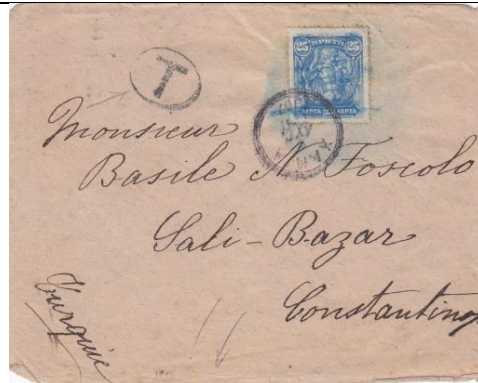 T
25 ΚΡΗΤΗ 25
ΛΕΠΤΑ ΛΕΠΤΑ
Monsieur
Basile N. Foscolo
Sali-Bazar
Constantinop
Turquie